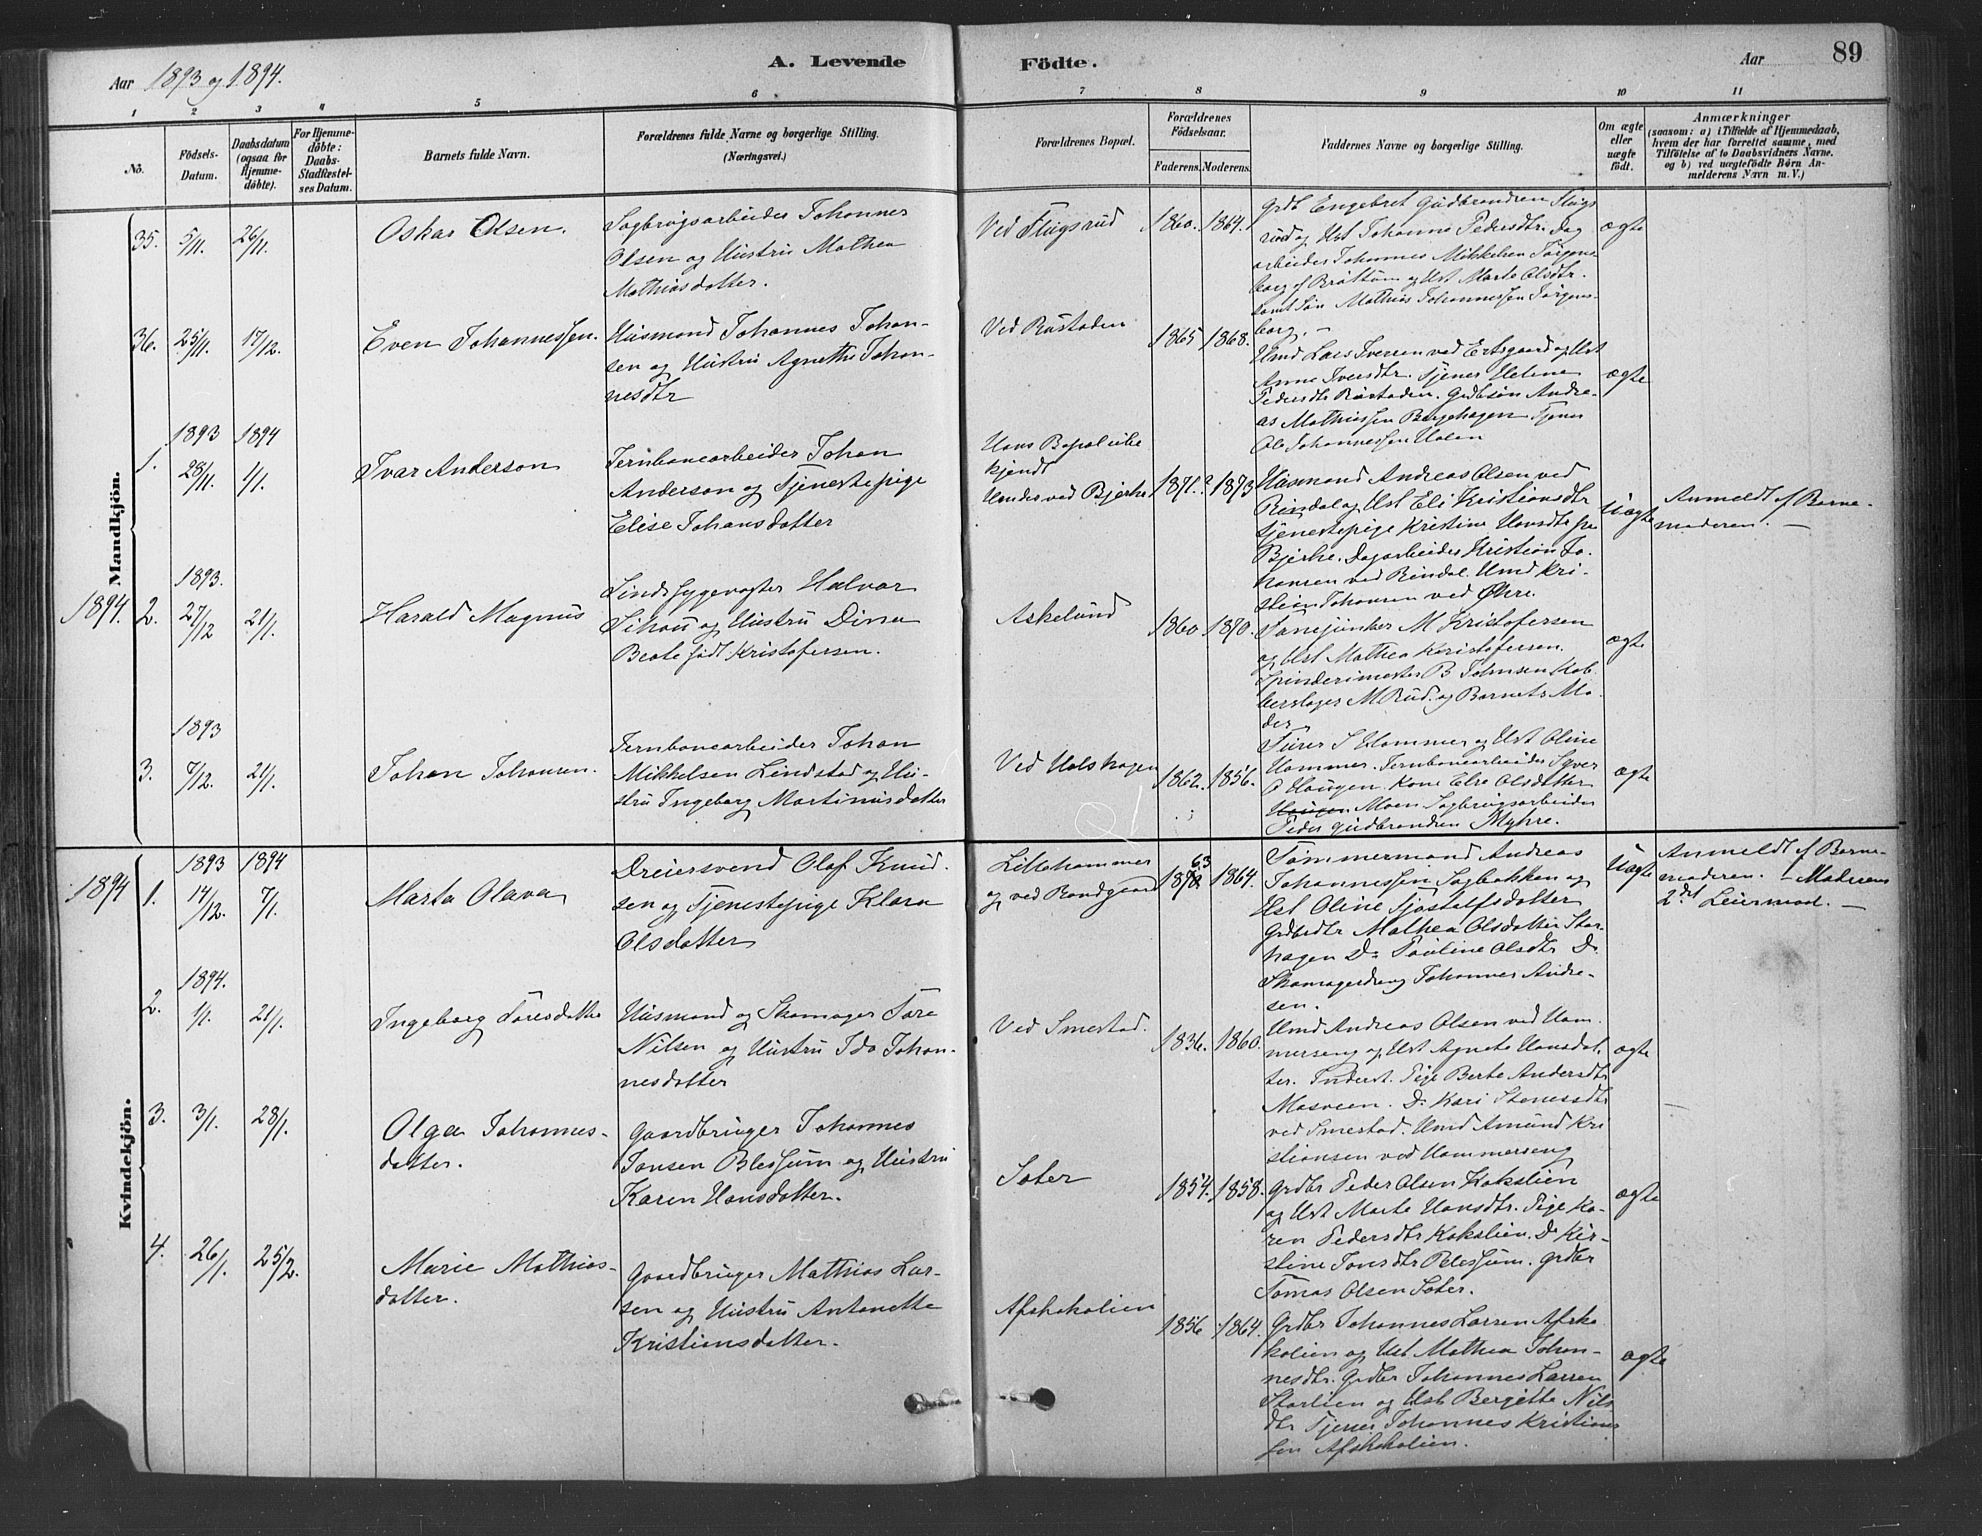 Aar 1893 og 1894.
A. Levende Födte.
Aar 89
1 2 3 4 5 6 7 8 9 10 11
No.
Fødsels-Datum.
Daabsdatum (ogsaa for Hjemmedøbte).
For Hjemmedøbte: Daabs-Stadfæstelses Datum.
Barnets fulde Navn.
Forældrenes fulde Navne og borgerlige Stilling. (Næringsvei.)
Forældrenes Bopæl.
Forældrenes Födselsaar.
Faderens. Moderens.
Faddernes Navne og borgerlige Stilling.
Om ægte eller uægte födt.
Anmærkninger
(saasom: a) i Tilfælde af Hjemmedaab,
hvem der har forrettet samme, med
Tilföielse af to Daabsvidners Navne.
og b) ved uægtefödte Börn Anmelderens
Navn m. V.)
Mandkjön.
35. 5/11. 26/11.
Oskar Olsen.
Sagbrugsarbeider Johannes
Olsen og Hustru Mathea
Mathiasdatter.
Ved Flugsrud
1860. 1864.
Grdb Engebret Gudbrandsen Flugs
rud og Hst Johanne Pedersdtr. Dag
arbeider Johannes Mikkelsen Jørgens
borg af Brøttum og Hst Marte Olsdtr.
samt Søn Mathias Johannessen Jørgens-
borg. –
ægte
36. 25/11. 17/12.
Even Johannessen.
Husmand Johannes Johan-
sen og Hustru Agnethe Johan-
nesdtr
Ved Røstaden
1865 1868.
Hmd Lars Iversen ved Ertsgaard og Hst
Anne Iversdtr. Tjener Helene
Pedersdtr Røstaden. Grdbsøn Andre-
as Mathiassen Bergehagen Tjener
Ole Johannessen Holen
ægte
1894.
1. 1893 28/11. 1894 1/1.
Ivar Anderson
Jernbanearbeider Johan
Anderson og Tjenestepige
Elise Johansdatter
Hans Bopæl ube
kjendt
Hendes ved Bjerke
1871.? 1873
Husmand Andreas Olsen ved
Rindal og Hst Eli Kristiansdtr
Tjenestepige Kristine Hansdtr fra
Bjerke. Dagarbeider Kristian Jo-
hansen ved Rindal. Hmd Kri-
stian Johansen ved Øhre.
Uægte
Anmeldt af Barne-
moderen. –
2. 1893. 27/12 21/1.
Harald Magnus
Sindssygevogter Halvor
Sihou og Hustru Dina
Beate født Kristofersen.
Askelund
1860. 1870.
Fanejunker M Kristofersen
og Hst Mathea Kristofersen.
Spinderimester B Johnsen Kob-
berslager M Rud. og Barnets Mo-
der
ægte
3. 1893 7/12. 21/1.
Johan Johansen.
Jernbanearbeider Johan
Mikkelsen Lindstad og Hu-
stru Ingeborg Martinusdatter
Ved Holshagen
1862. 1856.
Furer S Hammer og Hst Oline
Hammer. Jernbanearbeider Syver
O Haugen. Kone Else Olsdatter
Haugen Moen Sagbrugsarbeider
Peder Gudbrandsen Myhre.
ægte
Kvindekjön.
1894
1. 1893 14/12. 1894 7/1.
Marta Olava
Dreiersvend Olaf Knud-
sen og Tjenestepige Klara
Olsdatter
Lillehammer
og ved Bondgaard
63
1870 1864.
Tømmermand Andreas
Johannessen Sagbakken og
Hst Oline Tjostolfsdatter
Grdbrdtr Mathea Olsdatter Stor-
hagen Do Pauline Olsdtr Do
Skomagerdreng Johannes Andre-
sen.
Uægte
Anmeldt af Barne-
moderen. – Moderens
2det Leiermaal. –
2. 1894. 1/1. 21/1.
Ingeborg Toresdatter
Husmand og Skomager Tore
Nilsen og Hustru Ida Johan-
nesdatter
Ved Smestad.
1836. 1860.
Hmd Andreas Olsen ved Ham-
merseng og Hst Agnete Hansdat-
ter. Inderst. Pige Berte Andersdtr
Mosveen. Do Kari Stenersdtr
ved Smestad. Hmd Amund Kri
stiansen ved Hammerseng
ægte
3. 3/1. 28/1.
Olga Johannes-
datter.
Gaardbruger Johannes
Jonsen Blessum og Hustru
Karen Hansdatter.
Soter
1854. 1858.
Grdbr Peder Olsen Kokslien
og Hst Marte Hansdtr. Pige Ka-
ren Pedersdtr Kokslien. Do Kir-
stine Jonsdtr Blessum. Grdbr
Tomas Olsen Soter.
ægte
4. 26/1. 25/2.
Marie Mathias-
datter.
Gaardbruger Mathias Lar-
sen og Hustru Antonette
Kristiansdatter.
Afskakalien
1856 1864.
Grdbr Johannes Larsen Afska
kalien og Hst Mathea Johan-
nesdtr. Grdbr Johannes Larsen
Storlien og Hst Bergitte Nils
dtr Tjener Johannes Kristians
sen Afskakalien.
ægte